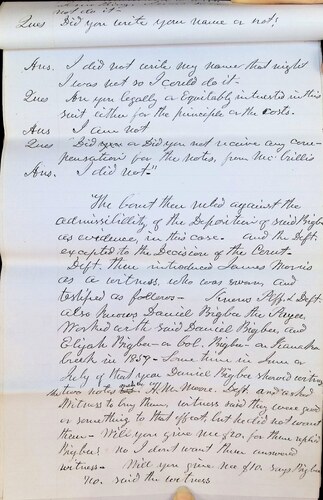 not do it -
Ques Did you write your name or not!
Ans. I did not write my name that night
I was not so I could do it -
Ques Are you legally or Equitably interested in this
suit either for the principle or the costs.
Ans I am not
Ques "Did you or Did you not receive any com-
pensation for the notes, from McCrillis
Ans. I did not."
"The court then ruled against the
admissibility of the Deposition of said Bigbee
as evidence, in this case - and the Deft.
excepted to the Decision of the Court -
Deft. then introduced James Morris
as a witness, who was sworn, and
testified as follows - Knows Plff & Deft.
also knows Daniel Bigbee the Payee,
Worked with said Daniel Bigbee and
Elijah Bigbee - a col. Bigbee - on Kanawha
Creek in 1859 - Some time in June or
July of that year Daniel Bigbee showed witness
two notes on H. M. Moore. Deft. and asked
Witness to buy them, witness said they were good
or something to that effect, but he did not want
them - Will you give me $20. for them replied
Bigbee? no I don't want them answered
witness - Will you give me $10. says Bigbee
No. said the witness